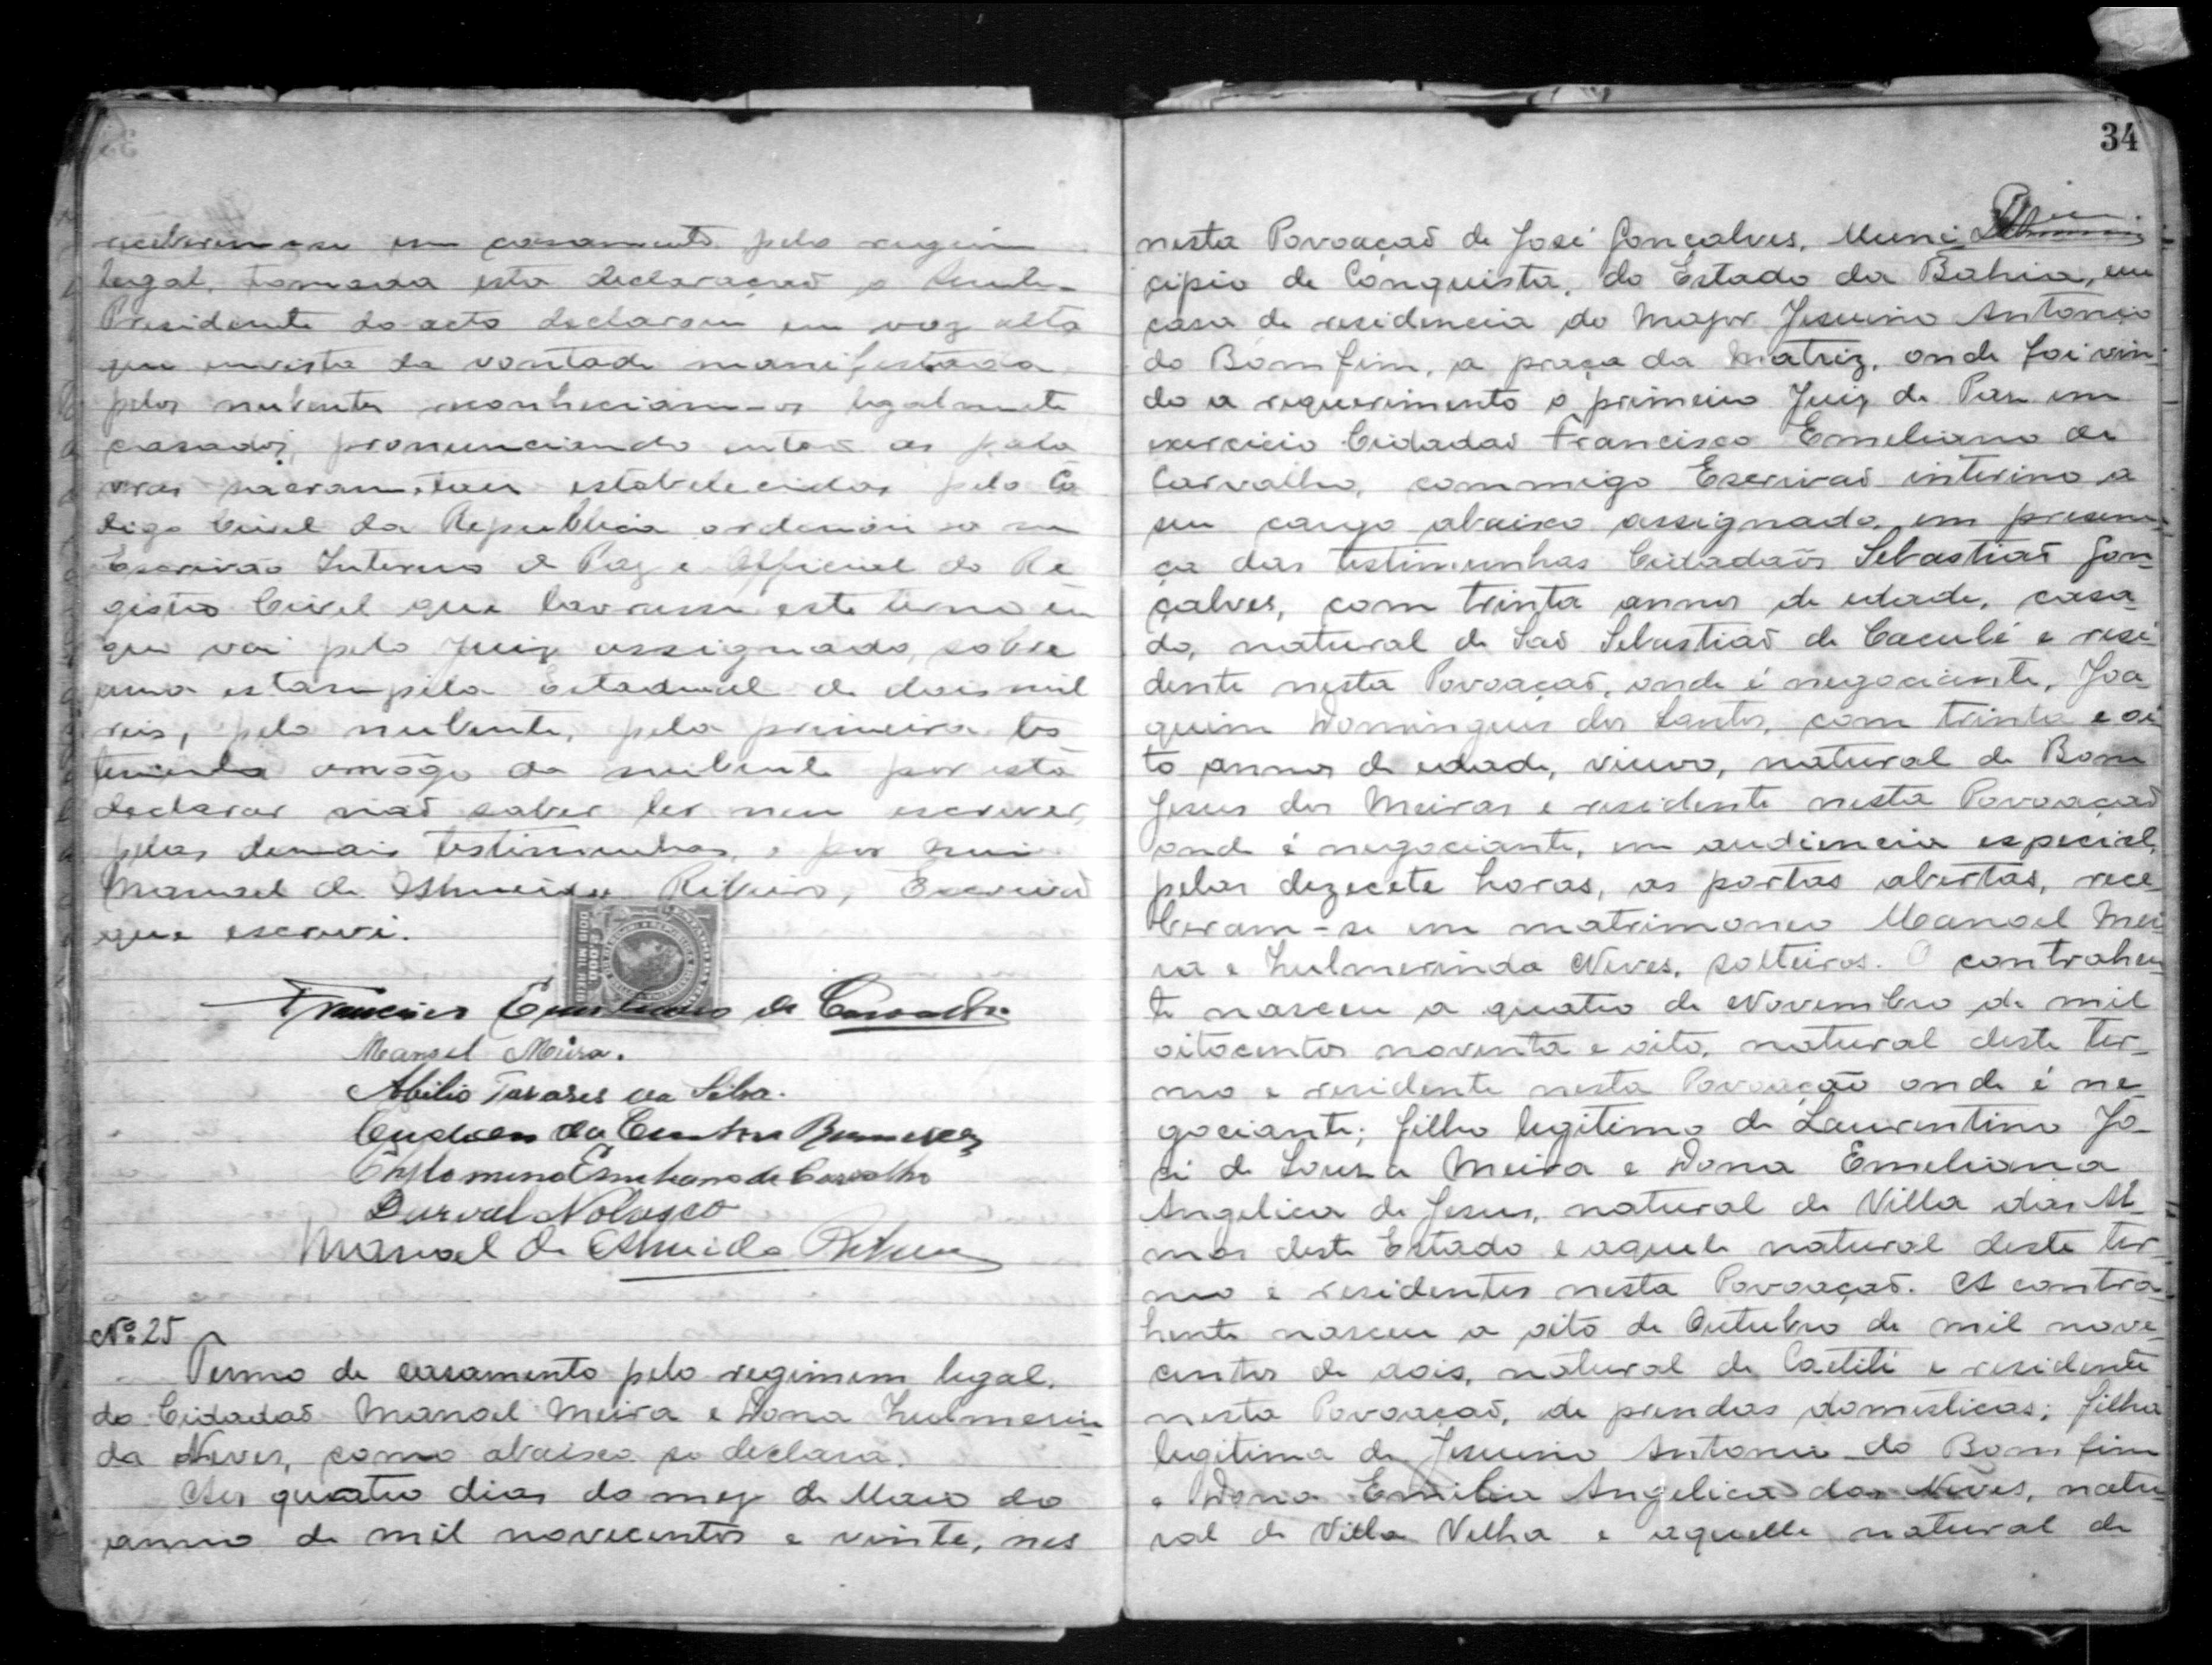 receberem-se em casamento pelo regimen
legal. Tomada esta declaração o Senhor
Presidente do acto declarou em voz alta
que em vista da vontade manifestada
pelos nubentes reconheciam-os legalmente
casados, pronunciando então as pala
vras sacramentaes estabelecidas pelo Co
digo Civel da Republica ordenou
Escrivão Interino de Paz e Official do Re
gistro Civel que lavrasse este termo em
que vai pelo Juiz assignado, sobre
uma estampilha Estadual de dois mil
reis, pelo nubente, pela primeira tes
temunha a rôgo da nubente por esta
declarar naõ saber ler nem escrever,
pelas demais testimunhas, e por mim
Manoel de Almeida Ribeiro, Escrivaõ
que escrevi.
2.000
DOIS MIL REIS
Francisco Emeliano de Carvalho
Manoel Meira.
Abilio Tavares da Silva.
da Cunha
Emeliano de Carvalho
Durval Nolasco
Manoel de Almeida Ribeiro
Nº 25
Termo de casamento pelo regimem legal.
do Cidadaõ Manoel Meira e Dona Zulmerin
da Neves, como abaixo se declara.
Aos quatro dias do mez de Maio do
anno de mil novecentos e vinte, nes
34
nesta Povoaçaõ de José Gonçalves, Muni
cipio de Conquista, do Estado da Bahia, em
casa de residencia do Major Jesuino Antonio
do Bomfim, a praça da Matriz, onde foi vin-
do a requerimento o primeiro Juiz de Paz em
exercicio Cidadaõ Francisco Emeliano de
Carvalho, commigo Escrivaõ interino a
seu cargo abaixo assignado, em presen-
ça das testimunhas Cidadaõs Sebastiaõ Gon-
çalves, com trinta annos de edade, casa-
do, natural de Saõ Sebastiaõ de Caculé e resi-
dente nesta Povoaçaõ, onde é negociante, Joa-
quim Domingues dos Santos, com trinta e oi
to annos de edade, viuvo, natural de Bom
Jesus dos Meiras e residente nesta Povoaçaõ
onde é negociante, em audiencia especial,
pelas dezecete horas, as portas abertas, rece-
beram-se em matrimoneo Manoel Mei-
ra e Zulmerinda Neves, solteiros. O contrahen-
te nasceu a quatro de Novembro de mil
oitocentos noventa e oito, natural deste ter-
mo e residente nesta Povoação onde é ne-
gociante; filho legitimo de Laurentino Jo-
sé de Souza Meira e Dona Emeliana
Angelica de Jesus, natural de Villa das Al-
mas deste Estado e aquele natural deste ter-
mo e residentes nesta Povoaçaõ. A contra-
hente nasceu a oito de Outubro de mil nove-
centos de dois, natural de Caetité e residente
nesta Povoaçaõ, de prendas domesticas; filha
legitima de Jesuino Antonio do Bomfim
e Dona Emilia Angelica das Neves, natu-
ral de Villa Velha e aquelle natural de